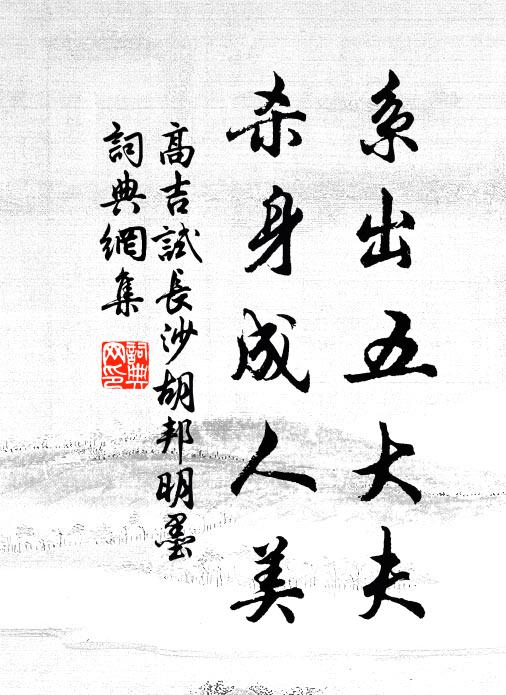 系出五大夫
杀身成人美
高吉試長沙胡邦明墨
詞典網集
詞典網印